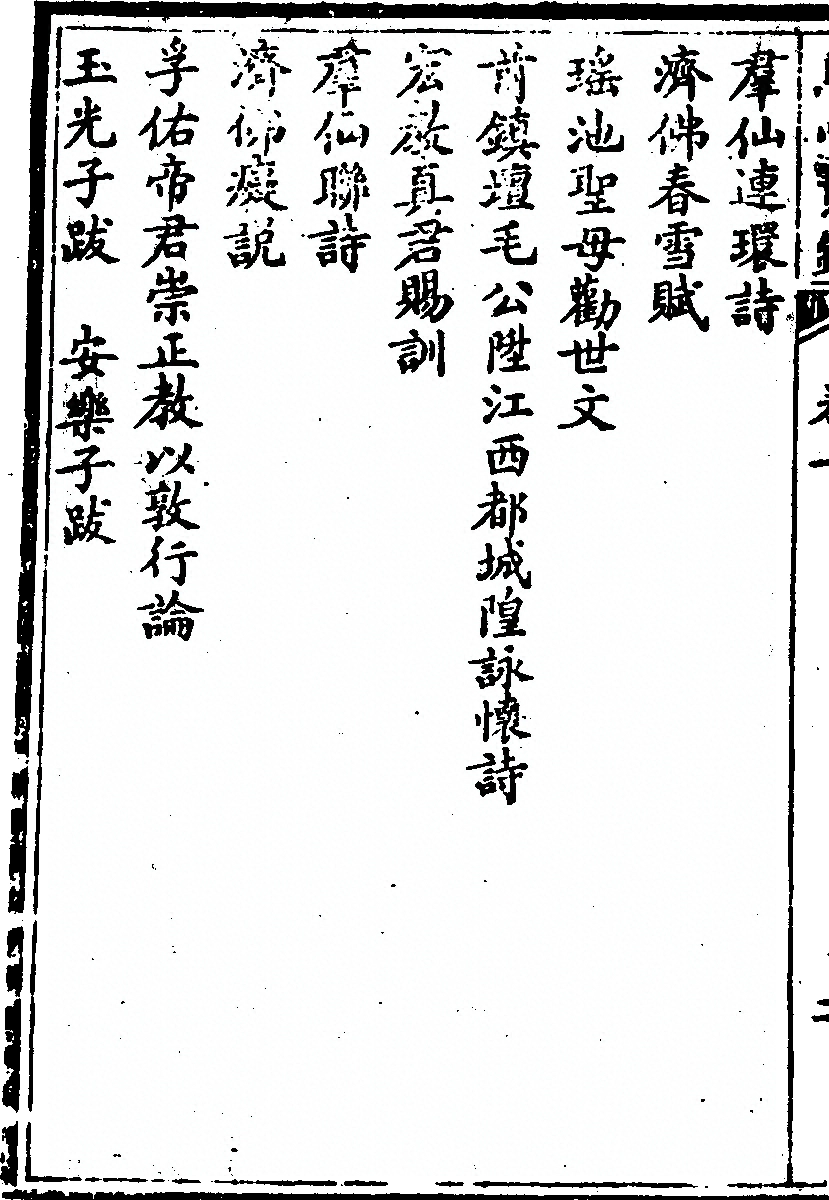 羣仙連環詩
濟佛春雪賦
瑶池聖母勸世文
前鎮壇毛公陞江西都城隍詠懷詩
宏教真君賜訓
羣仙聯詩
濟佛癡説
孚佑帝君崇正教以敦行論
玉光子跋　安樂子跋